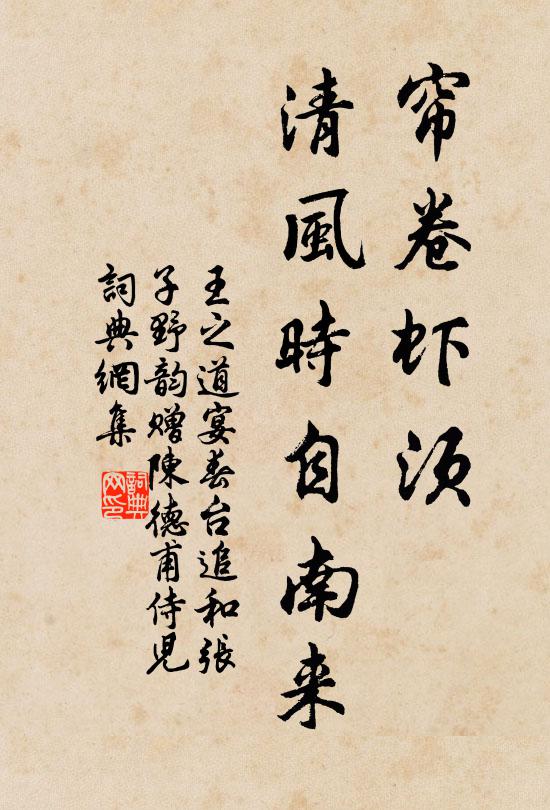 帘卷虾须
清風時自南来
王之道宴春台追和張
子野韵赠陳德甫侍児
詞典網集
詞典
网印